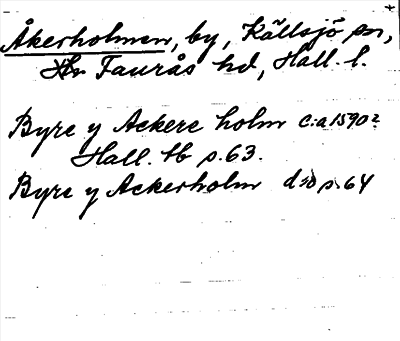 Åkerholmen, by, Källsjö sn,
Faurås hd, Hall. l.
Byre y Ackere holm c:a 1590?
Hall. tb s. 63.
Byre y Ackerholm d:o s. 64